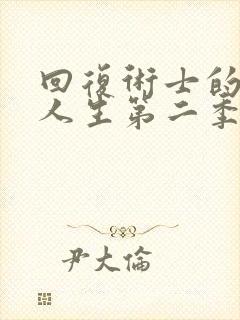 回復術士的
人生第二季
尹大倫